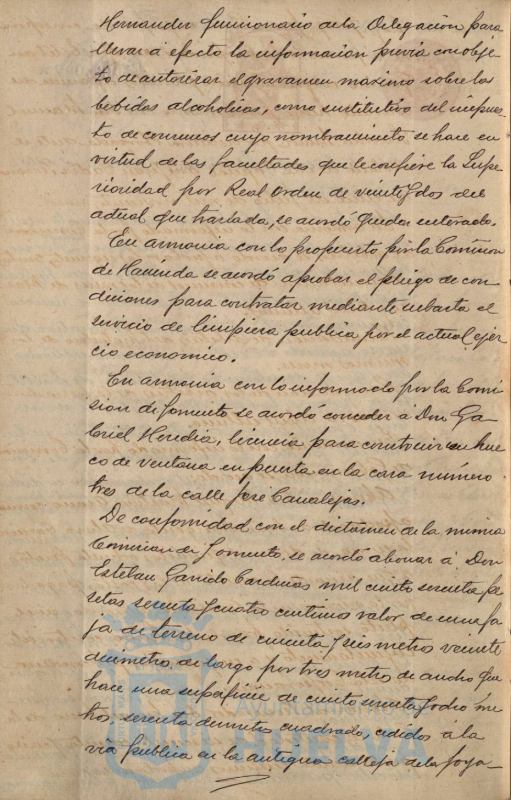 Hernandez funcionario de la Delegación para
llevar á efecto la informacion previa con obje-
to de autorizar el gravamen maximo sobre las
bebidas alcoholicas, como sustitutivo del impues-
to de consumos cuyo nombramiento se hace en
virtud de las facultades que le confiere la Supe-
rioridad por Real Orden de veinte y dos del
actual que traslada, se acordó quedar enterado.
En armonia con lo propuesto por la Comision
de Hacienda se acordó aprobar el pliego de con-
diciones para contratar mediante subasta el
servicio de limpieza publica por el actual ejer-
cicio economico.
En armonia con lo informado por la Comi-
sion de Fomento se acordó conceder á Don Ga-
briel Heredia, licencia para construir un hue-
co de ventana en puerta en la casa número
tres de la calle José Canalejas.
De conformidad con el dictamen de la misma
Comision de Fomento, se acordó abonar á Don
Esteban Garrido Cardeñas mil ciento sesenta pe-
setas sesenta y cuatro centimos valor de una fa-
ja de terreno de cincuenta y seis metros veinte
decimetros, de largo por tres metros de ancho que
hace una superficie de ciento sesenta y ocho me-
tros, sesenta decimetros cuadrados, cedidos á la
via publica en la antigua calleja de la Joya-
Ayuntamiento de
HUELVA